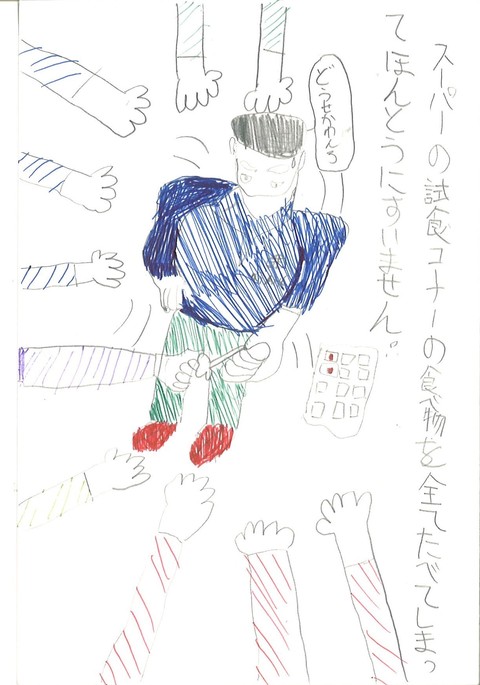 スーパーの試食コーナーの食べ物を全てたべてしまっ
てほんとうにすいません。
どうせかわんろ